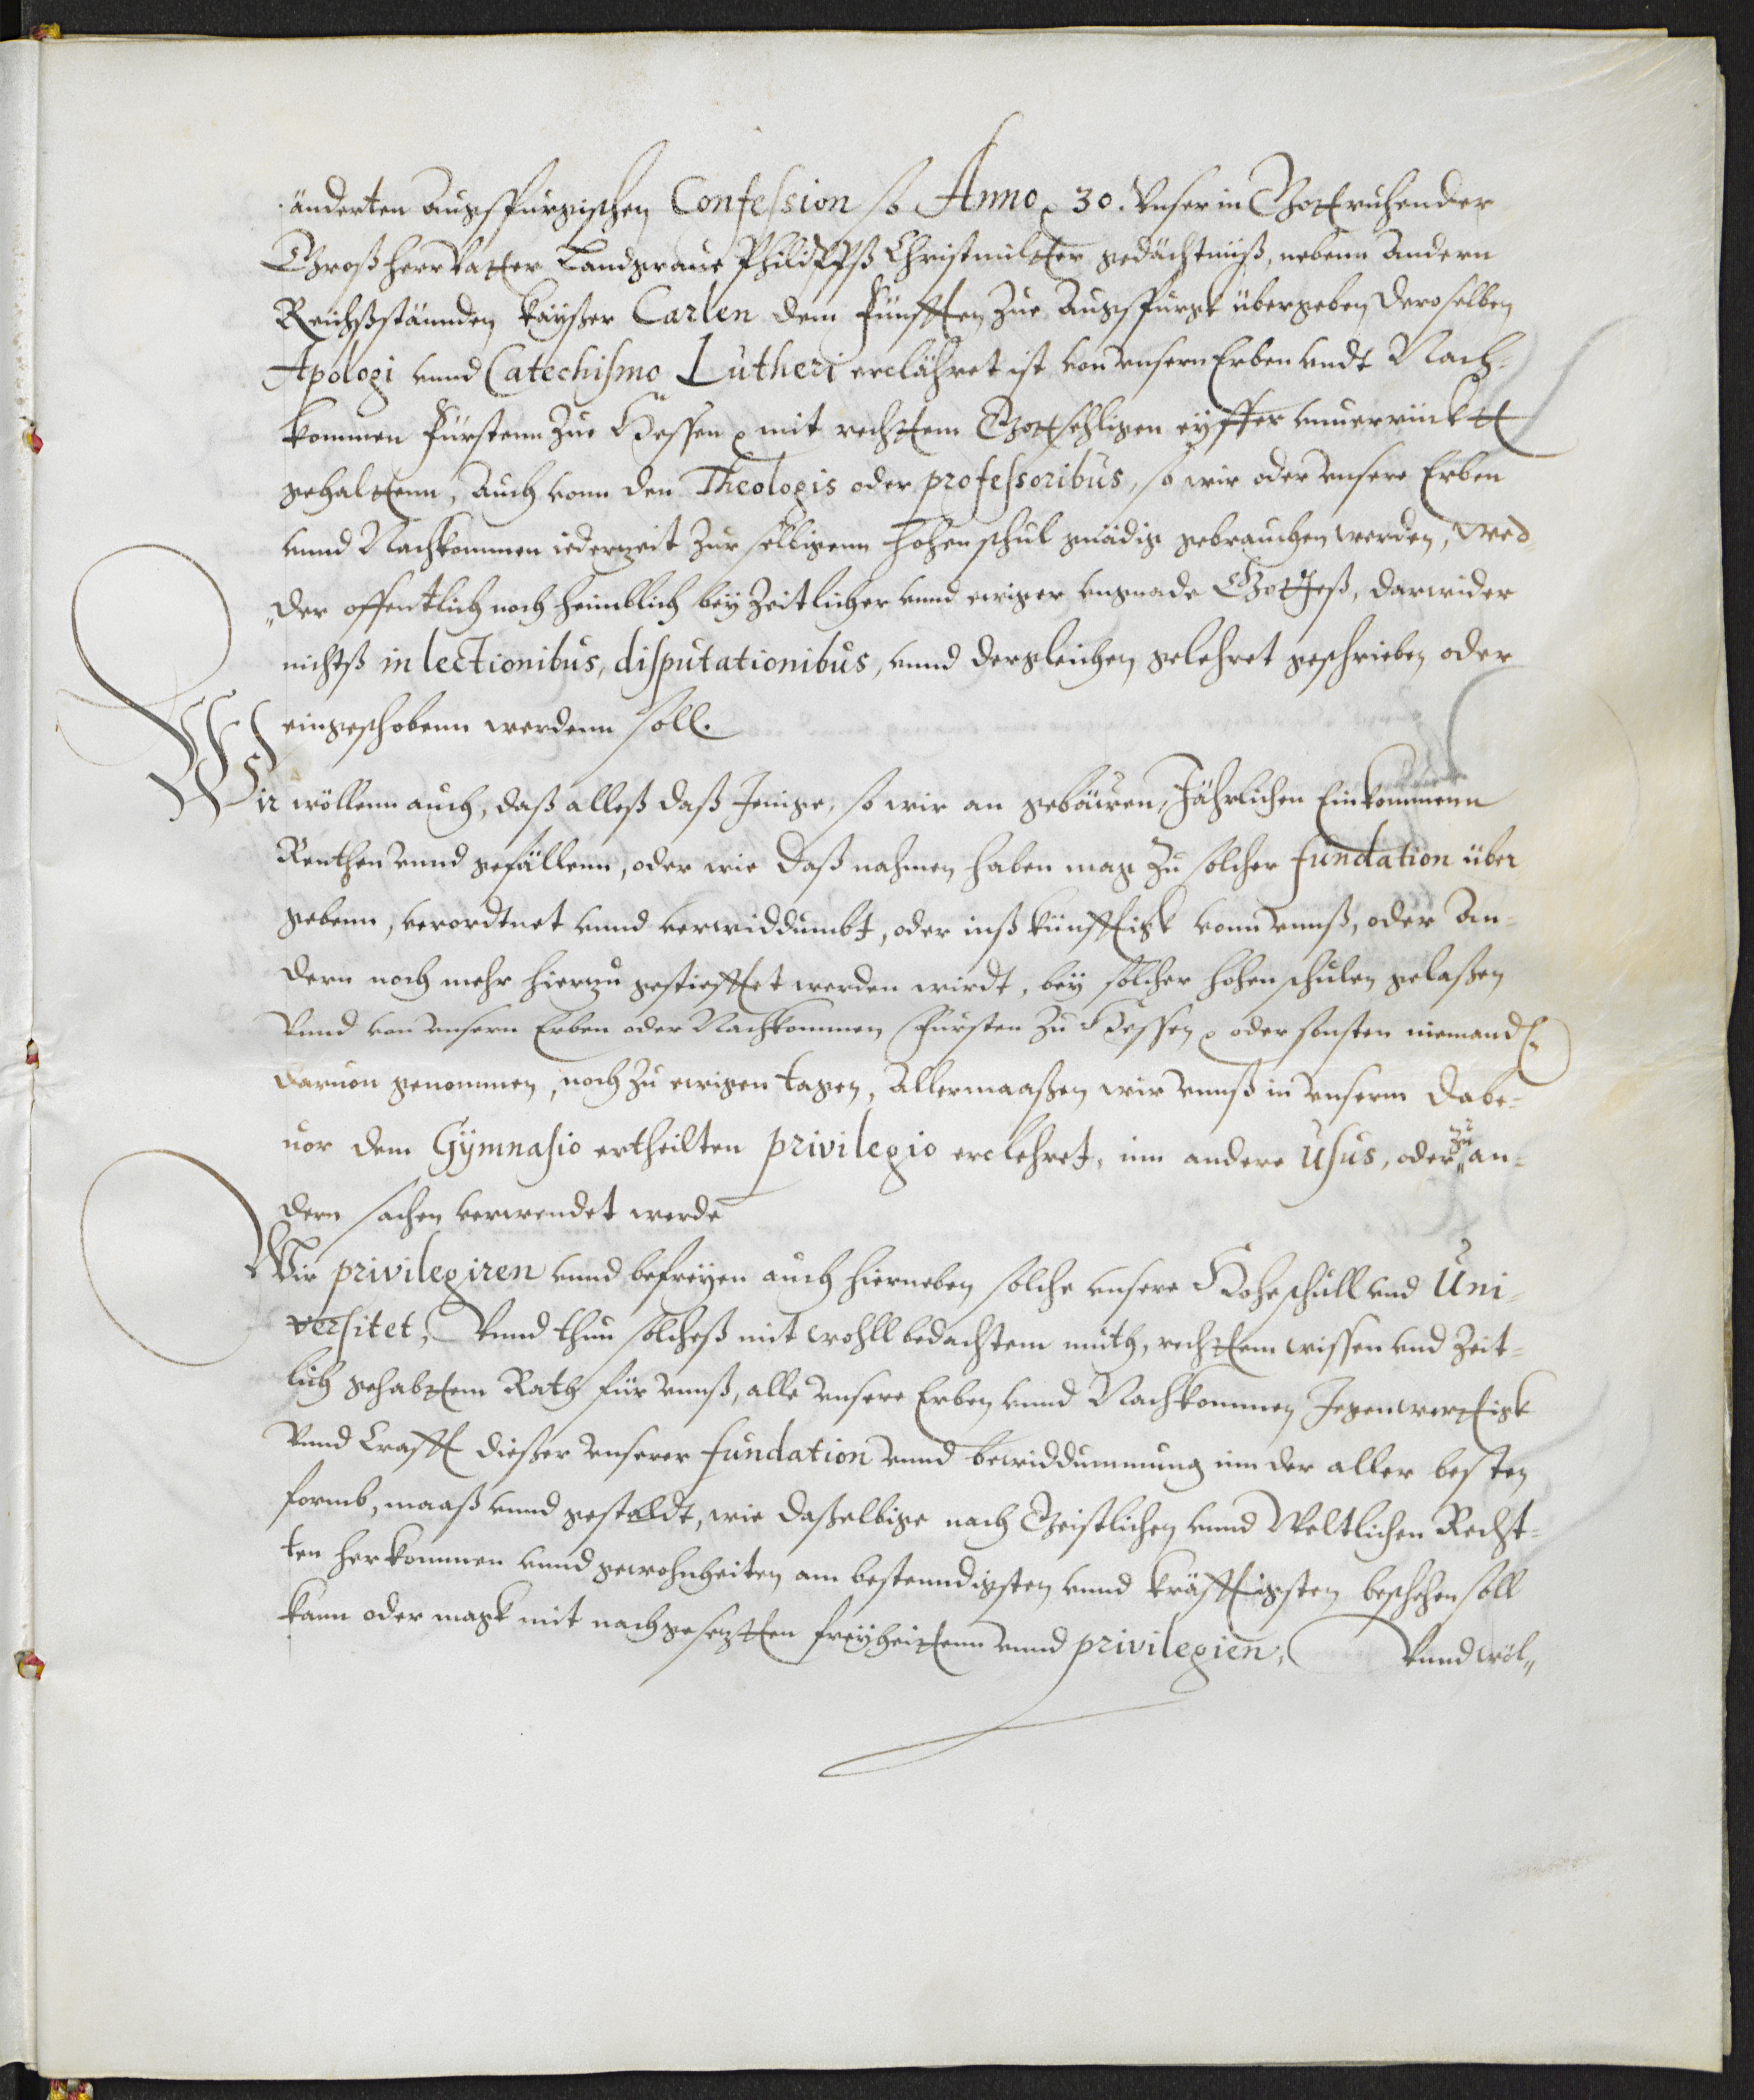 änderten Augspurgischen Confession so Anno 30. Vnser in Gott ruhender
Großherr Vatter Landgraue Philipps Christmilter gedächtnüß, nebenn Andern
Reichßständen, Kayßer Carlen dem Fünfften, Zue Augspurgk übergeben, deroselben
Apologi vnnd Catechismo Lutheri erclähret ist von vnsern Erben vndt Nach-
kommen Fürstenn Zue Hessen mit rechttem Gottsehligen eyffer vnuerrückt
gehaltenn, Auch vonn den Theologis oder professoribus, so wir oder vnsere Erben
vnnd Nachkommen iederzeit Zur selbigenn hohenschul gnädig gebrauchen werden, wed-
der offentlich noch heimblich bey Zeitlicher vnnd ewiger vngnade Gotteß, darwider
nichtß in lectionibus, disputationibus, vnnd dergleichen, gelehret geschrieben oder
eingeschobenn werdenn soll.
Wir wöllenn auch, daß alleß daß Jenige, so wir an gebäwen, Jährlichen Einkommenn
Renthen vnnd gefällenn, oder wie daß nahmen haben mag Zu solcher fundation über
gebenn, verordtnet vnnd verwiddumbt, oder inß künfftigk vonn vnnß, oder An-
dern noch mehr hierzu gestiefftet werden wirdt, bey solcher hohenschulen gelaßen
Vnnd von vnsern Erben oder Nachkommen Fürsten Zu Hessen oder sonsten niemandß
daruon genommen, noch Zu ewigen tagen, Allermaaßen wir vnnß in vnserm dabe-
uor dem Gymnasio ertheilten privilegio erclehret, inn andere Usus, oder zu an-
dern sachen verwendet werde
Wir privilegiren vnnd befreyen auch hierneben solche vnsere Hoheschull vnd Uni-
versitet, Vnnd thun solcheß mit wohllbedachtem muth, rechttem wissen vnd Zeit-
lich gehabttem Rath für vnnß, alle vnsere Erben vnnd Nachkommen Jegenwerttigk
Vnnd Crafft dießer vnserer fundation vnnd bewiddummung inn der aller besten
formb, maaß vnnd gestalldt, wie daßelbige nach Geistlichen vnnd Weltlichen Recht-
ten herkommen vnnd gewohnheiten am bestenndigsten vnnd kräfftigsten beschehen soll
kann oder magk mit nachgesetzten freyheittenn vnnd privilegien, Vnnd wöl„